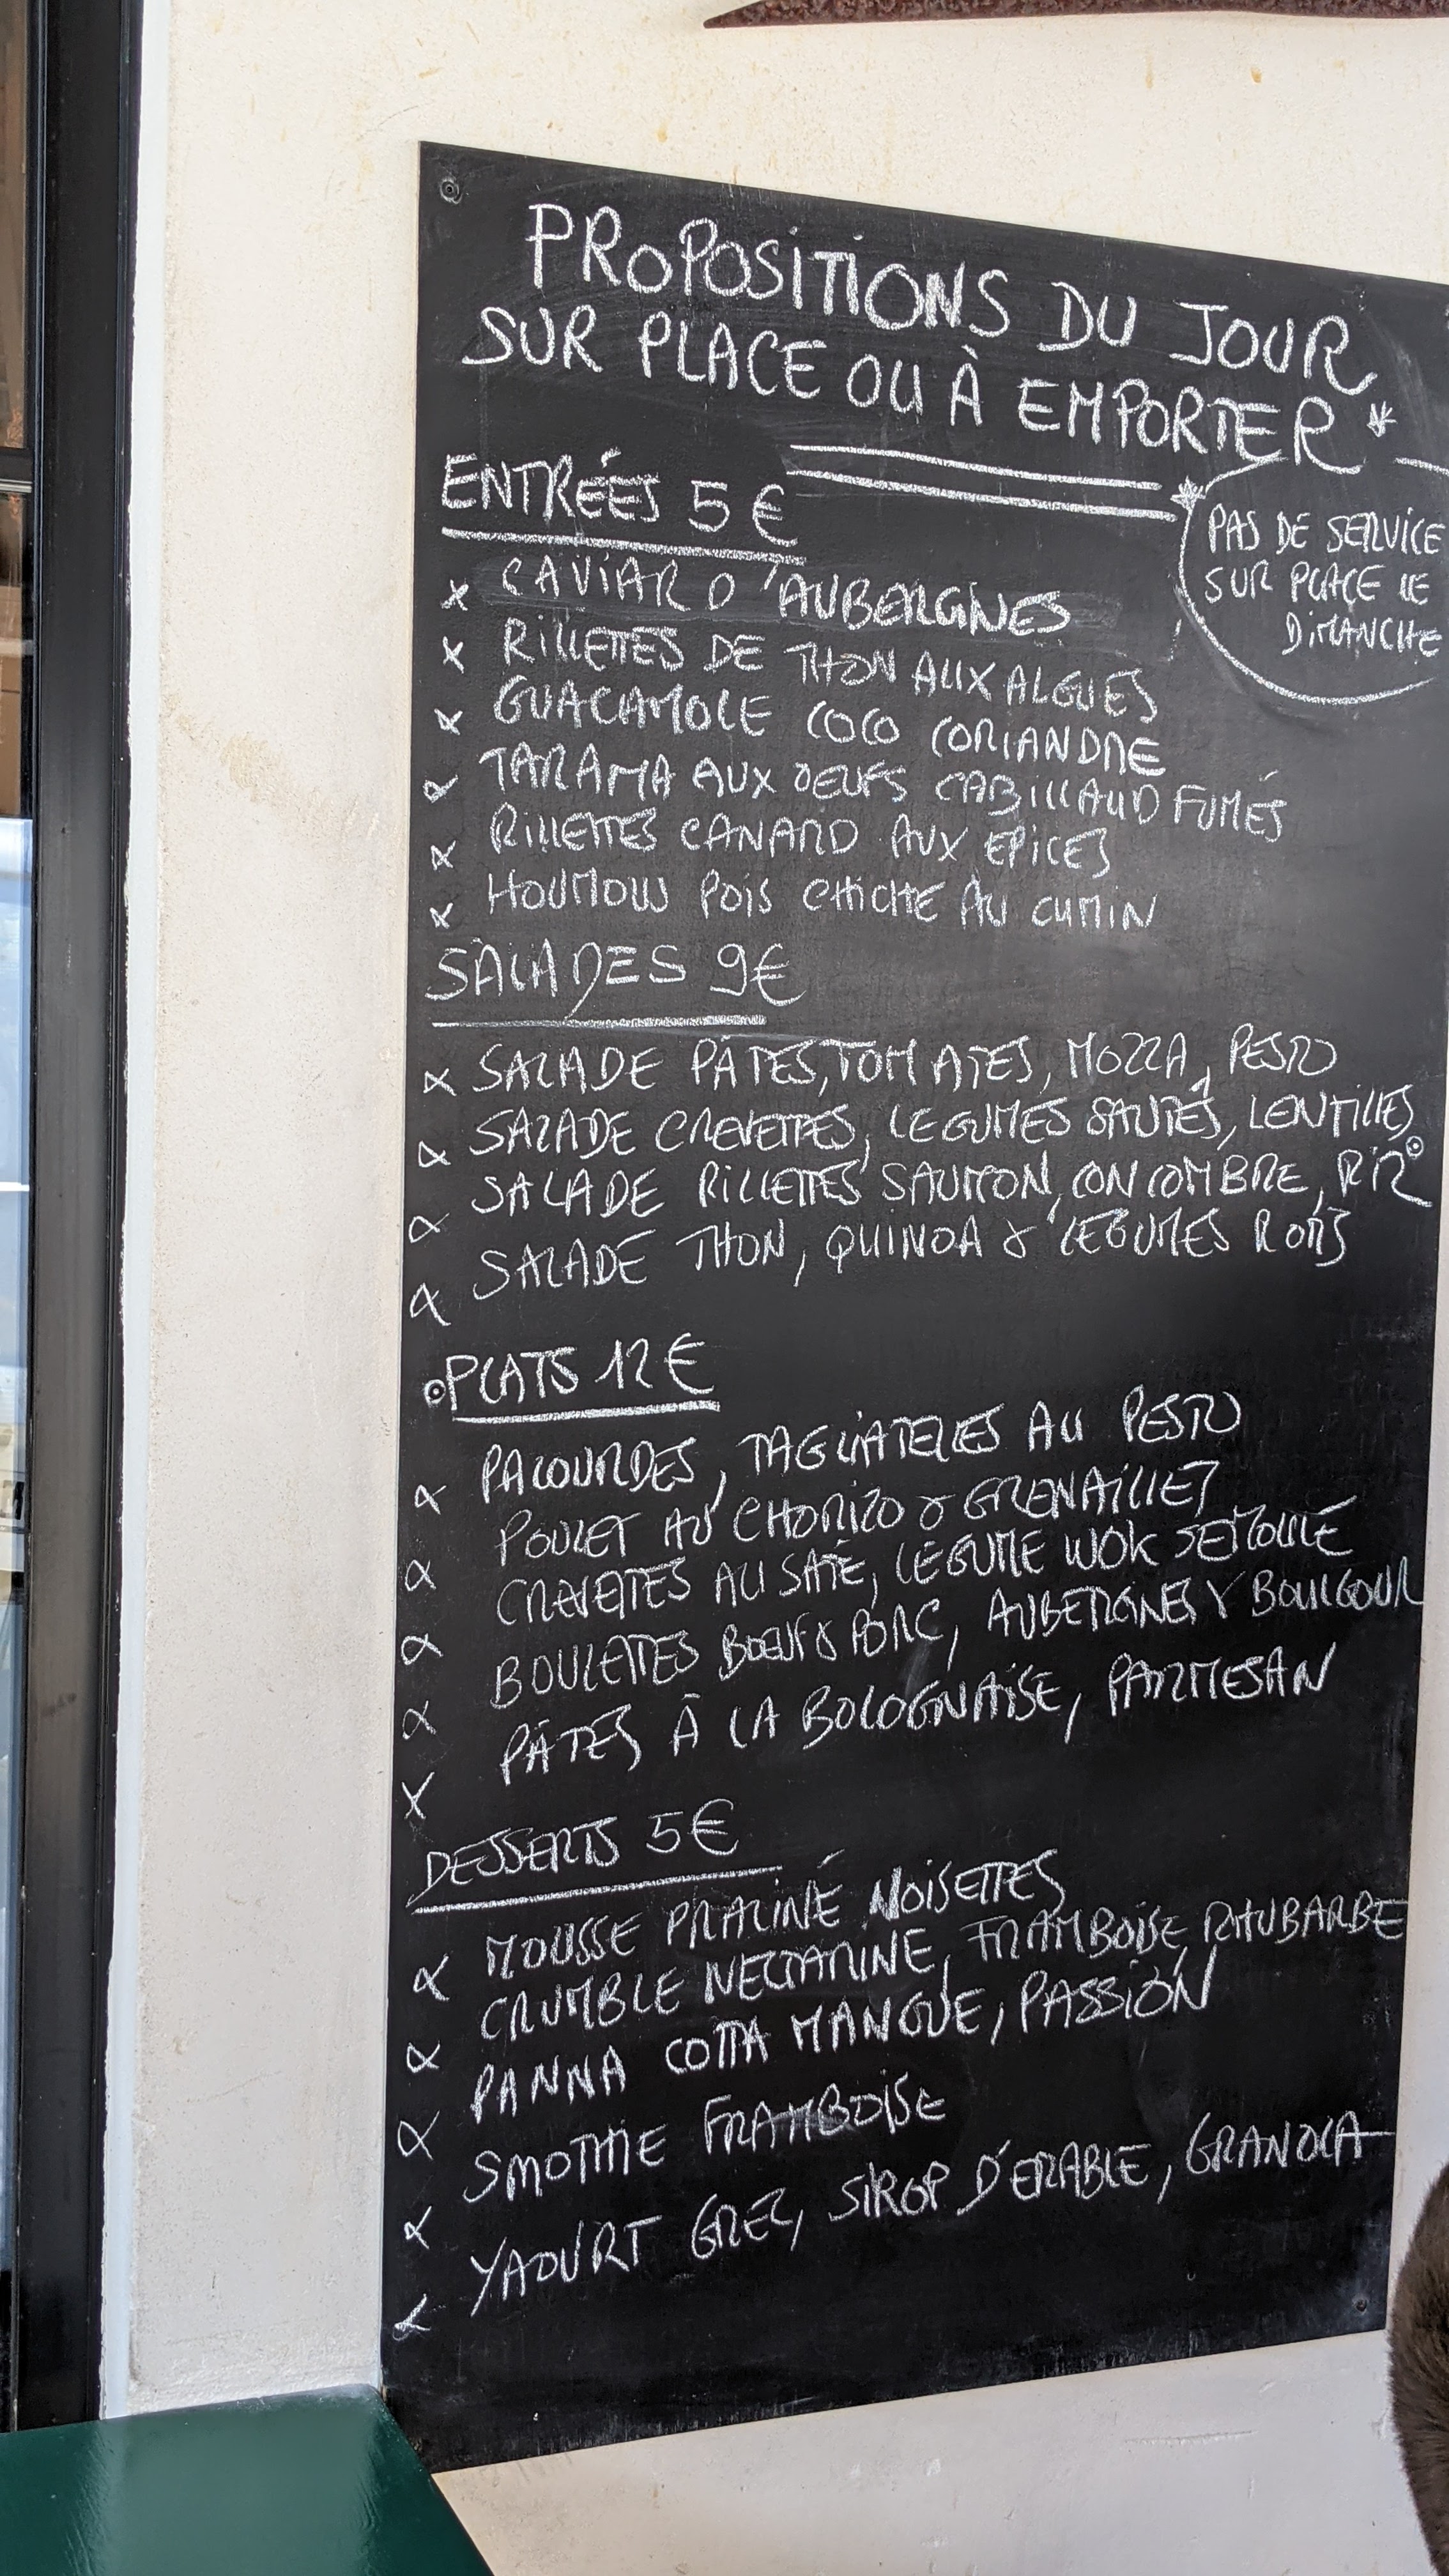 PROPOSITIONS DU JOUR
SUR PLACE OU À EMPORTER *
* PAS DE SERVICE
SUR PLACE LE
DIMANCHE
ENTRÉES 5 €
x CAVIAR D'AUBERGINES
x RILLETTES DE THON AUX ALGUES
x GUACAMOLE COCO CORIANDRE
x TARAMA AUX OEUFS CABILLAUD FUMÉS
x RILLETTES CANARD AUX EPICES
x HOUMOUS POIS CHICHE AU CUMIN
SALADES 9€
x SALADE PÂTES, TOMATES, MOZZA, PESTO
x SALADE CREVETTES, LEGUMES SAUTÉS, LENTILLES
x SALADE RILLETTES SAUMON, CONCOMBRE, RIZ
x SALADE THON, QUINOA & LEGUMES ROTIS
PLATS 12€
x PALOURDES, TAGLIATELLES AU PESTO
x POULET AU CHORIZO & GRENAILLES
x CREVETTES AU SATÉ, LÉGUME WOK SEMOULE
x BOULETTES BOEUF & PORC, AUBERGINES & BOULGOUR
x PÂTES À LA BOLOGNAISE, PARMESAN
DESSERTS 5€
x MOUSSE PRALINÉ NOISETTES
x CRUMBLE NECTARINE, FRAMBOISE, RHUBARBE
x PANNA COTTA MANGUE, PASSION
x SMOTHIE FRAMBOISE
x YAOURT GREC, SIROP D'ERABLE, GRANOLA